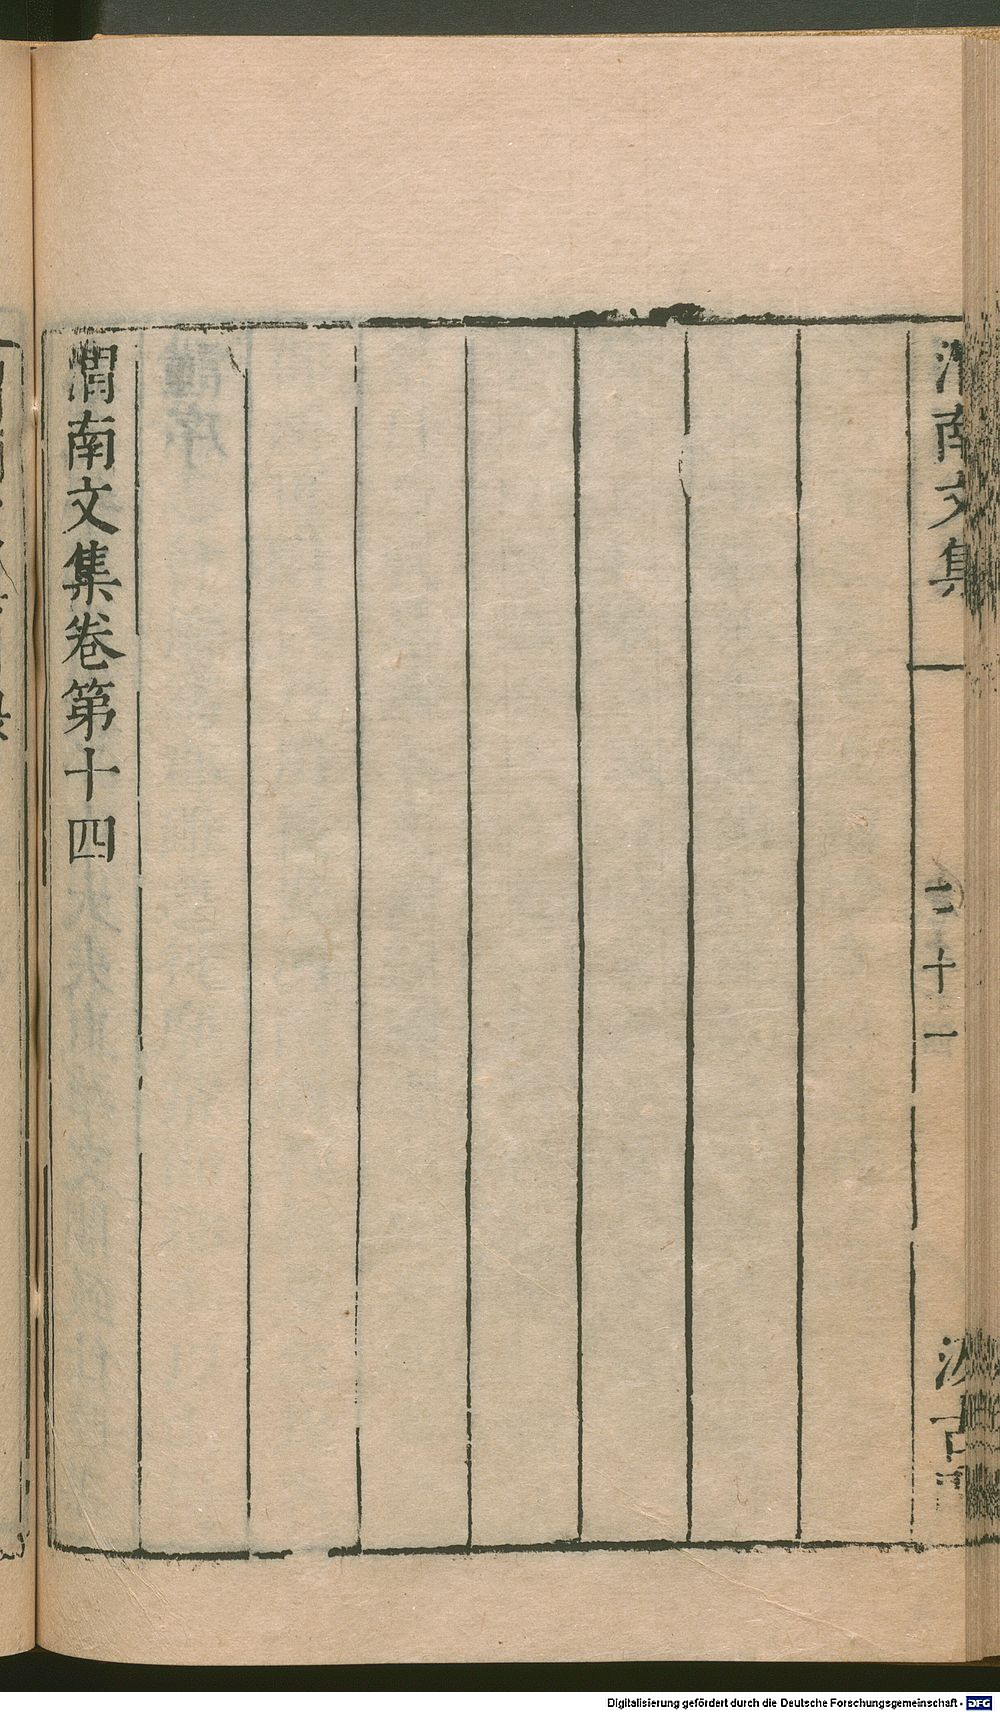 渭南文集
二十一
汲古
渭南文集卷第十四
Digitalisierung gefördert durch die Deutsche Forschungsgemeinschaft - DFG